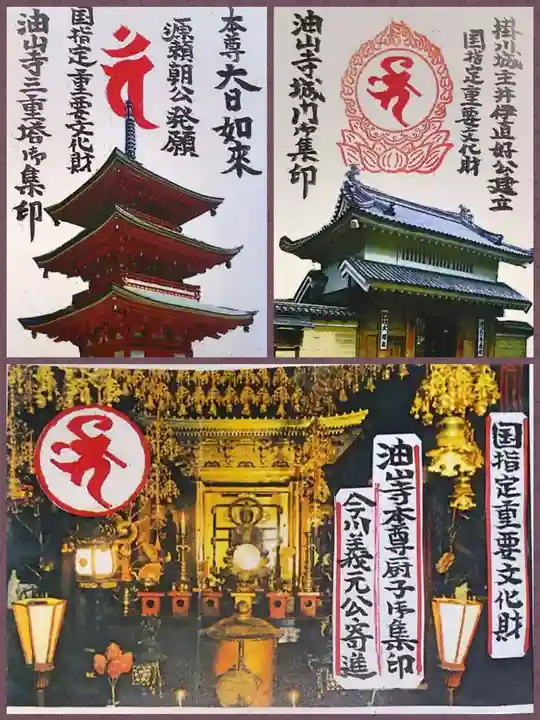 本尊大日如來
源頼朝公発願
国指定重要文化財
油山寺三重塔御集印
掛川城主井伊直好公建立
国指定重要文化財
油山寺城門御集印
国指定重要文化財
油山寺本尊厨子御集印
今川義元公寄進